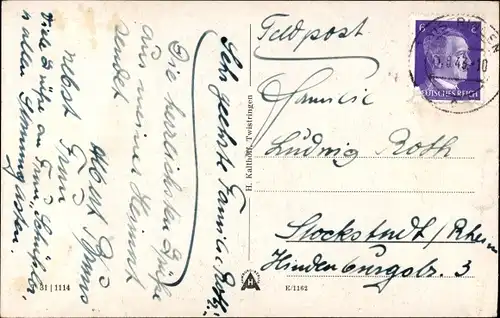 Sehr geehrte Familie Roth!
Die herzlichsten Grüße
aus meiner Heimat
sendet
Albert
nebst Frau
Viele Grüße an Frau
n allen Stammgästen.
31 | 1114
H. Kalthoff, Twistringen
K/1162
Feldpost
Familie
Ludwig Roth
Stockstadt/Rhein
Hindenburgstr. 3
6 6
DEUTSCHES REICH